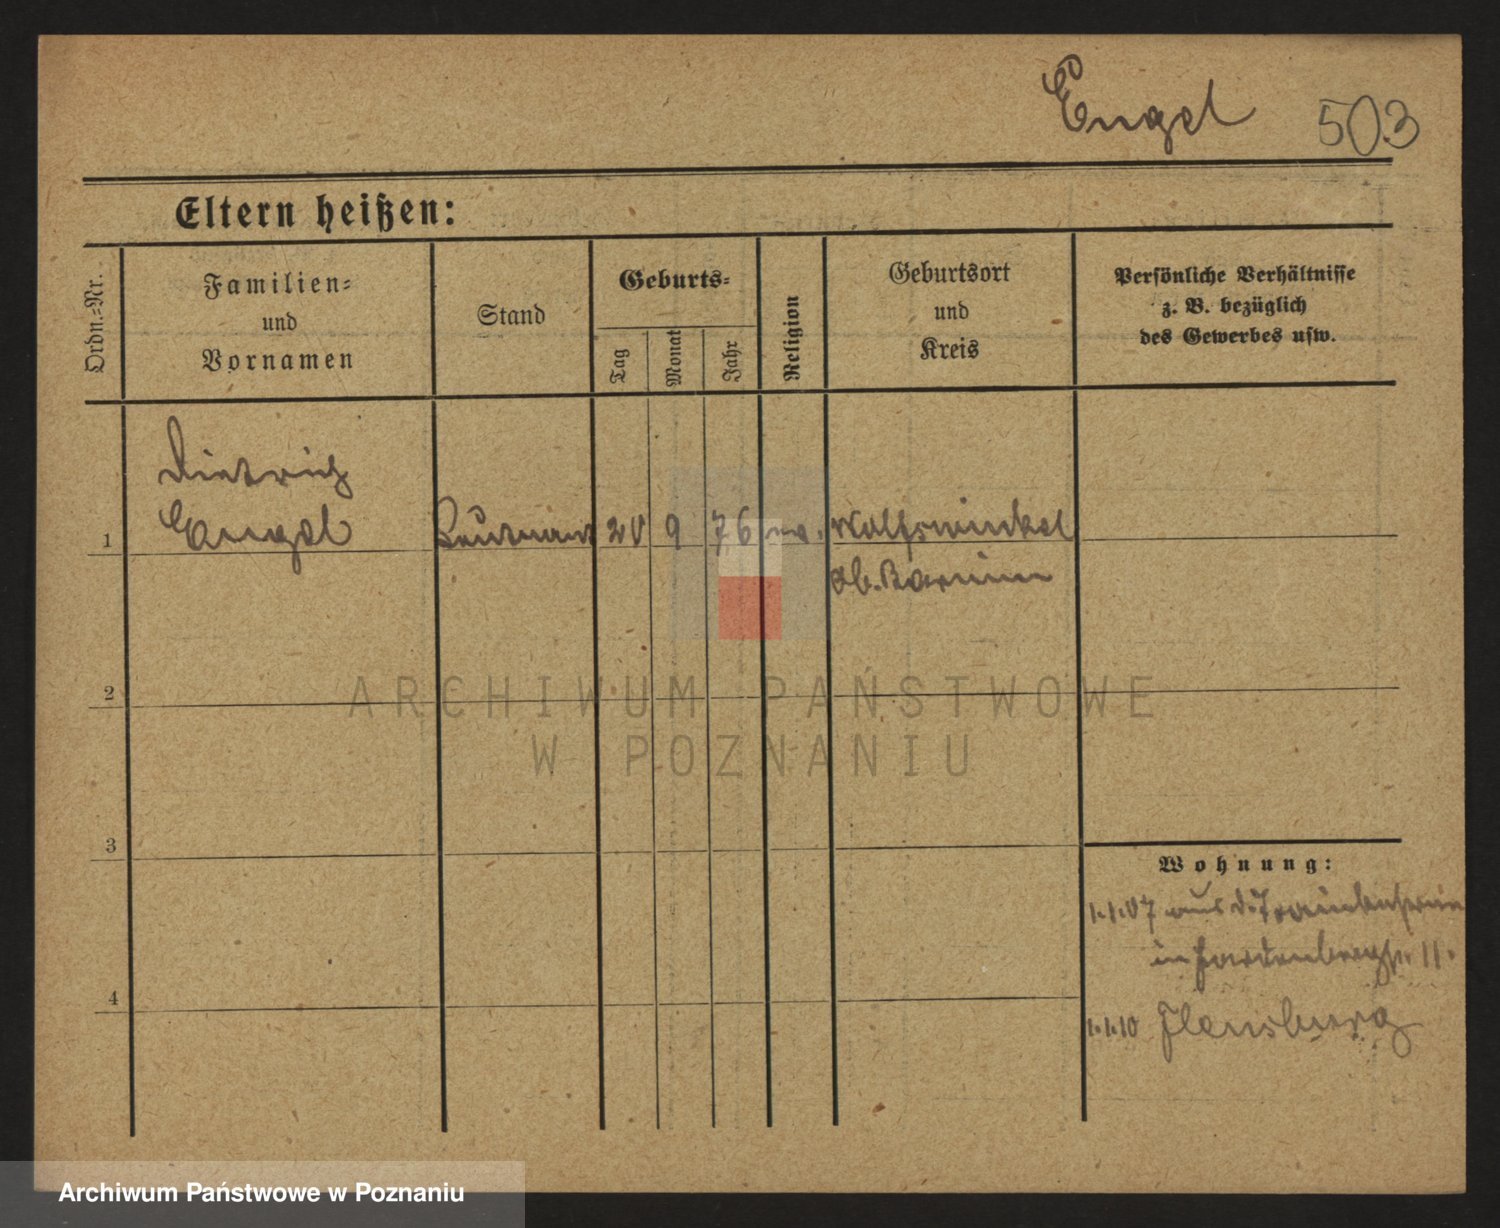 Engel 503
Eltern heißen:
Ordn.-Nr.
Familien-
und
Vornamen
Stand
Geburts-
Tag
Monat
Jahr
Religion
Geburtsort
und
Kreis
Persönliche Verhältnisse
z. B. bezüglich
des Gewerbes usw.
Dietrich
1 Engel Leutnant 20 9 76 ev. Wolfswinkel
Ob. Barnim
2
3
4
Wohnung:
1.1.07 aus
in Hardenbergstr. 11.
1.1.10 Flensburg
ARCHIWUM PAŃSTWOWE
W POZNANIU
Archiwum Państwowe w Poznaniu